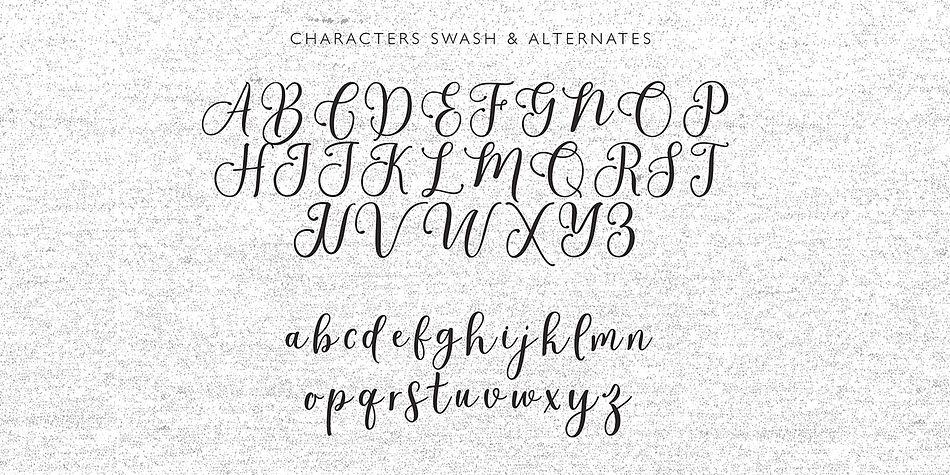 CHARACTERS SWASH & ALTERNATES
A B C D E F G N O P
H I J K L M Q R S T
U V W X Y Z
a b c d e f g h i j k l m n
o p q r s t u v w x y z